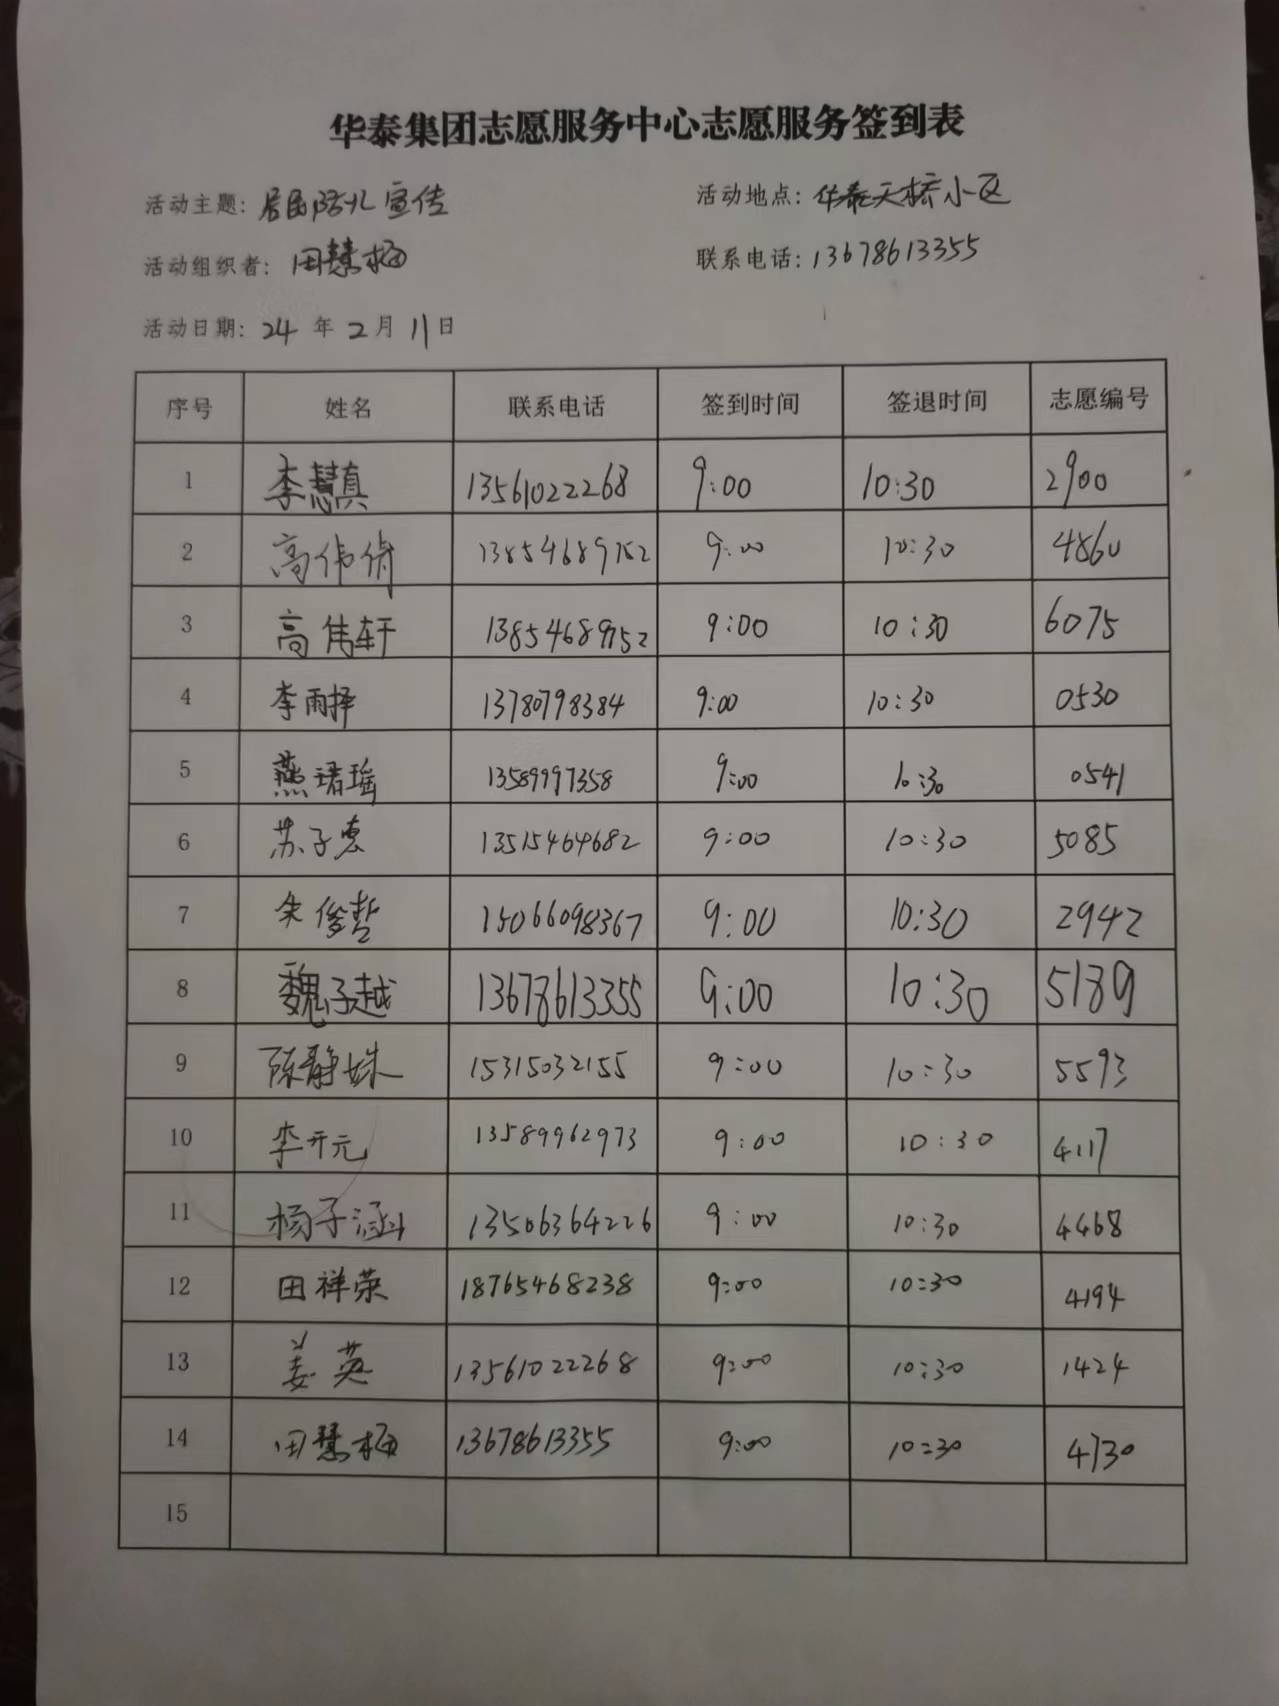 华泰集团志愿服务中心志愿服务签到表
活动主题: 居民防火宣传 活动地点: 华泰天桥小区
活动组织者: 田慧梅 联系电话: 13678613355
活动日期: 24 年 2 月 11 日
序号 姓名 联系电话 签到时间 签退时间 志愿编号
1 李慧真 13561022268 9:00 10:30 2900
2 高伟倩 13854689752 9:00 10:30 4860
3 高伟轩 13854689752 9:00 10:30 6075
4 李雨择 13780798384 9:00 10:30 0530
5 燕珺瑶 13589997358 9:00 10:30 0541
6 苏子惠 13515464682 9:00 10:30 5085
7 朱俊哲 15066098367 9:00 10:30 2942
8 魏子越 13678613355 9:00 10:30 5189
9 陈静姝 15315032155 9:00 10:30 5593
10 李开元 13589962973 9:00 10:30 4117
11 杨子涵 13506364226 9:00 10:30 4468
12 田祥荣 18765468238 9:00 10:30 4194
13 姜英 13561022268 9:00 10:30 1424
14 田慧梅 13678613355 9:00 10:30 4730
15